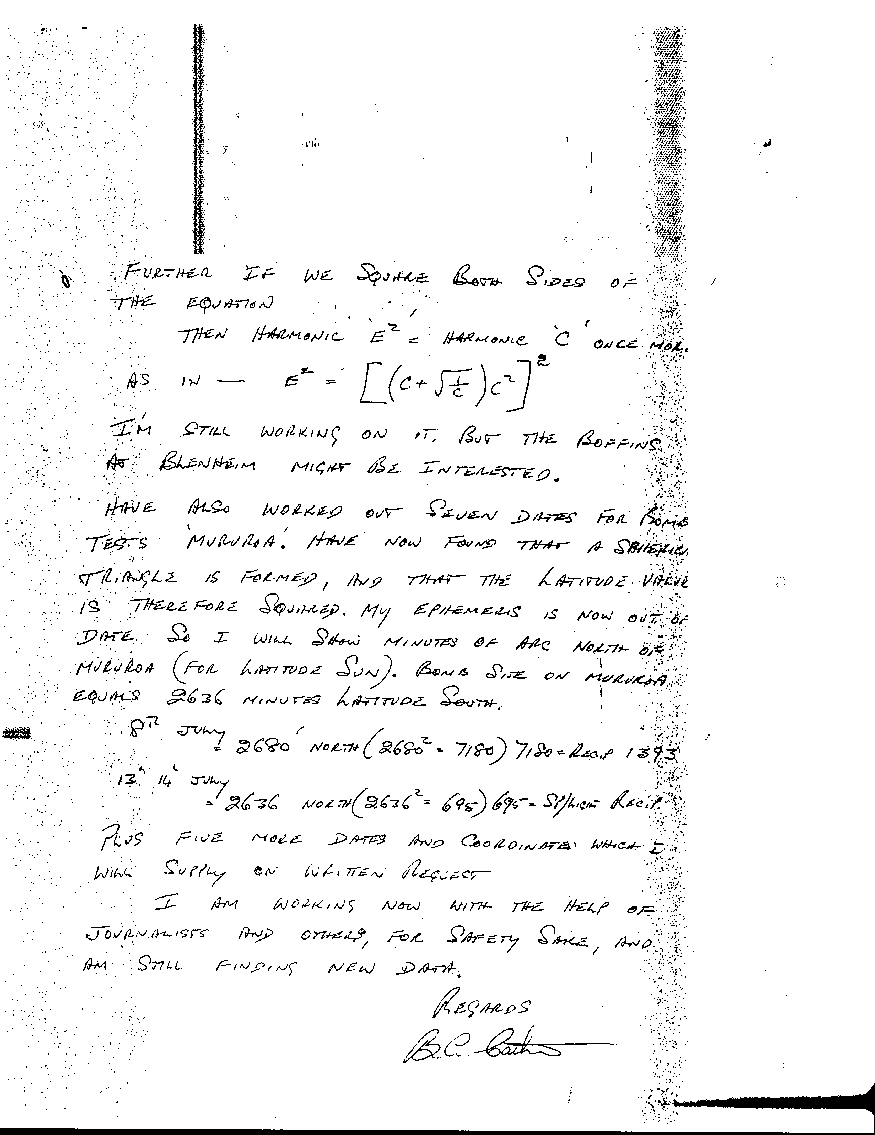 FURTHER IF WE SQUARE BOTH SIDES OF
THE EQUATION
THEN HARMONIC 'E² = HARMONIC 'C' ONCE MOR.
AS IN — E² = [(C + √1/C) C²]²
I'M STILL WORKING ON IT. BUT THE BOFFINS
AT BLENHEIM MIGHT BE INTERESTED.
HAVE ALSO WORKED OUT SEVEN DATES FOR BOMB
TESTS 'MURUROA'. HAVE NOW FOUND THAT A SPHERIC
TRIANGLE IS FORMED, AND THAT THE LATITUDE VALUE
IS THEREFORE SQUARED. MY EPHEMERIS IS NOW OUT OF
DATE SO I WILL SHOW MINUTES OF ARC NORTH OF
MURUROA (FOR LATITUDE SUN). BOMB SITE ON MURUROA
EQUALS 2636 MINUTES LATITUDE SOUTH.
8TH JULY
= 2680' NORTH (2680² = 7180) 7180 = RECIP 1393
13' 14' JULY
= 2636 NORTH (2636² = 695) 695 = SP/LIGHT RECIP
PLUS FIVE MORE DATES AND COORDINATES WHICH I
WILL SUPPLY ON WRITTEN REQUEST
I AM WORKING NOW WITH THE HELP OF
JOURNALISTS AND OTHERS, FOR SAFETY SAKE, AND
AM STILL FINDING NEW DATA.
REGARDS
B.C. Cathie